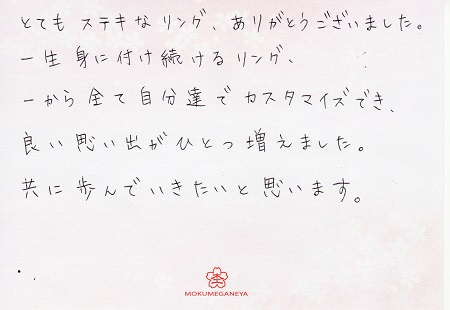 とても ステキな リング、ありがとうございました。
一生 身に付け続けるリング、
一から 全て 自分達で カスタマイズでき、
良い思い出が ひとつ 増えました。
共に 歩んで いきたいと 思います。
MOKUMEGANEYA